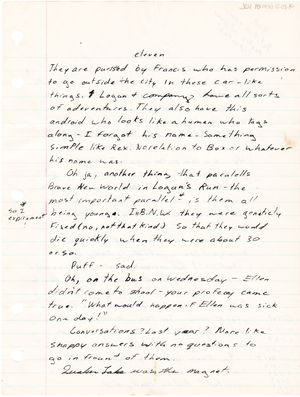 eleven
They are pursued by Francis who has permission
to go outside the city in those car-like
things. Logan & company have all sorts
of adventures. They also have this
android who looks like a human who tags
along - I forgot his name - Something
simple like Rex. No relation to Box or whatever
his name was.
Oh ja, another thing that paralells
Brave New World in Logan's Run - the
most important parallel - is them all
being younge. In B.N.W they were geneticly
Fixed (no, not that kind) so that they would
die quickly when they were about 30
or so.
so I
explained
Puff - sad.
Oh, on the bus on wednesday - Ellen
didn't come to shool - your profecy came
true. "What would happen if Ellen was sick
one day!"
Conversations? Last year? More like
snappy answers with no questions to
go in fraunt of them.
was the magnet.